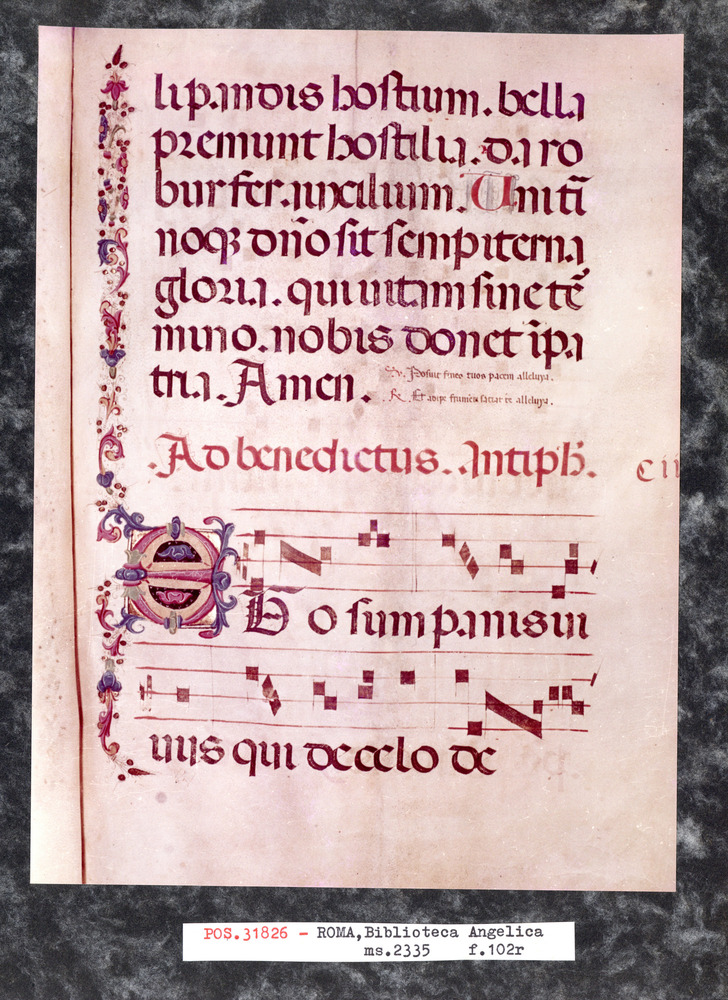 li pandis hostium. bella
premunt hostilia. da ro
bur fer auxilium. Uni tri
noq; dño sit sempiterna
gloria. qui uitam sine te᷑
mino. nobis donet ī pa
tria. Amen.
℣. Posuit fines tuos pacem alleluya.
℟. Et adipe frumēti saciat te alleluya.
Ad benedictus. Antiph̄.
EGO sum panis ui
uus qui de celo de
POS.31826 - ROMA,Biblioteca Angelica
ms.2335 f.102r